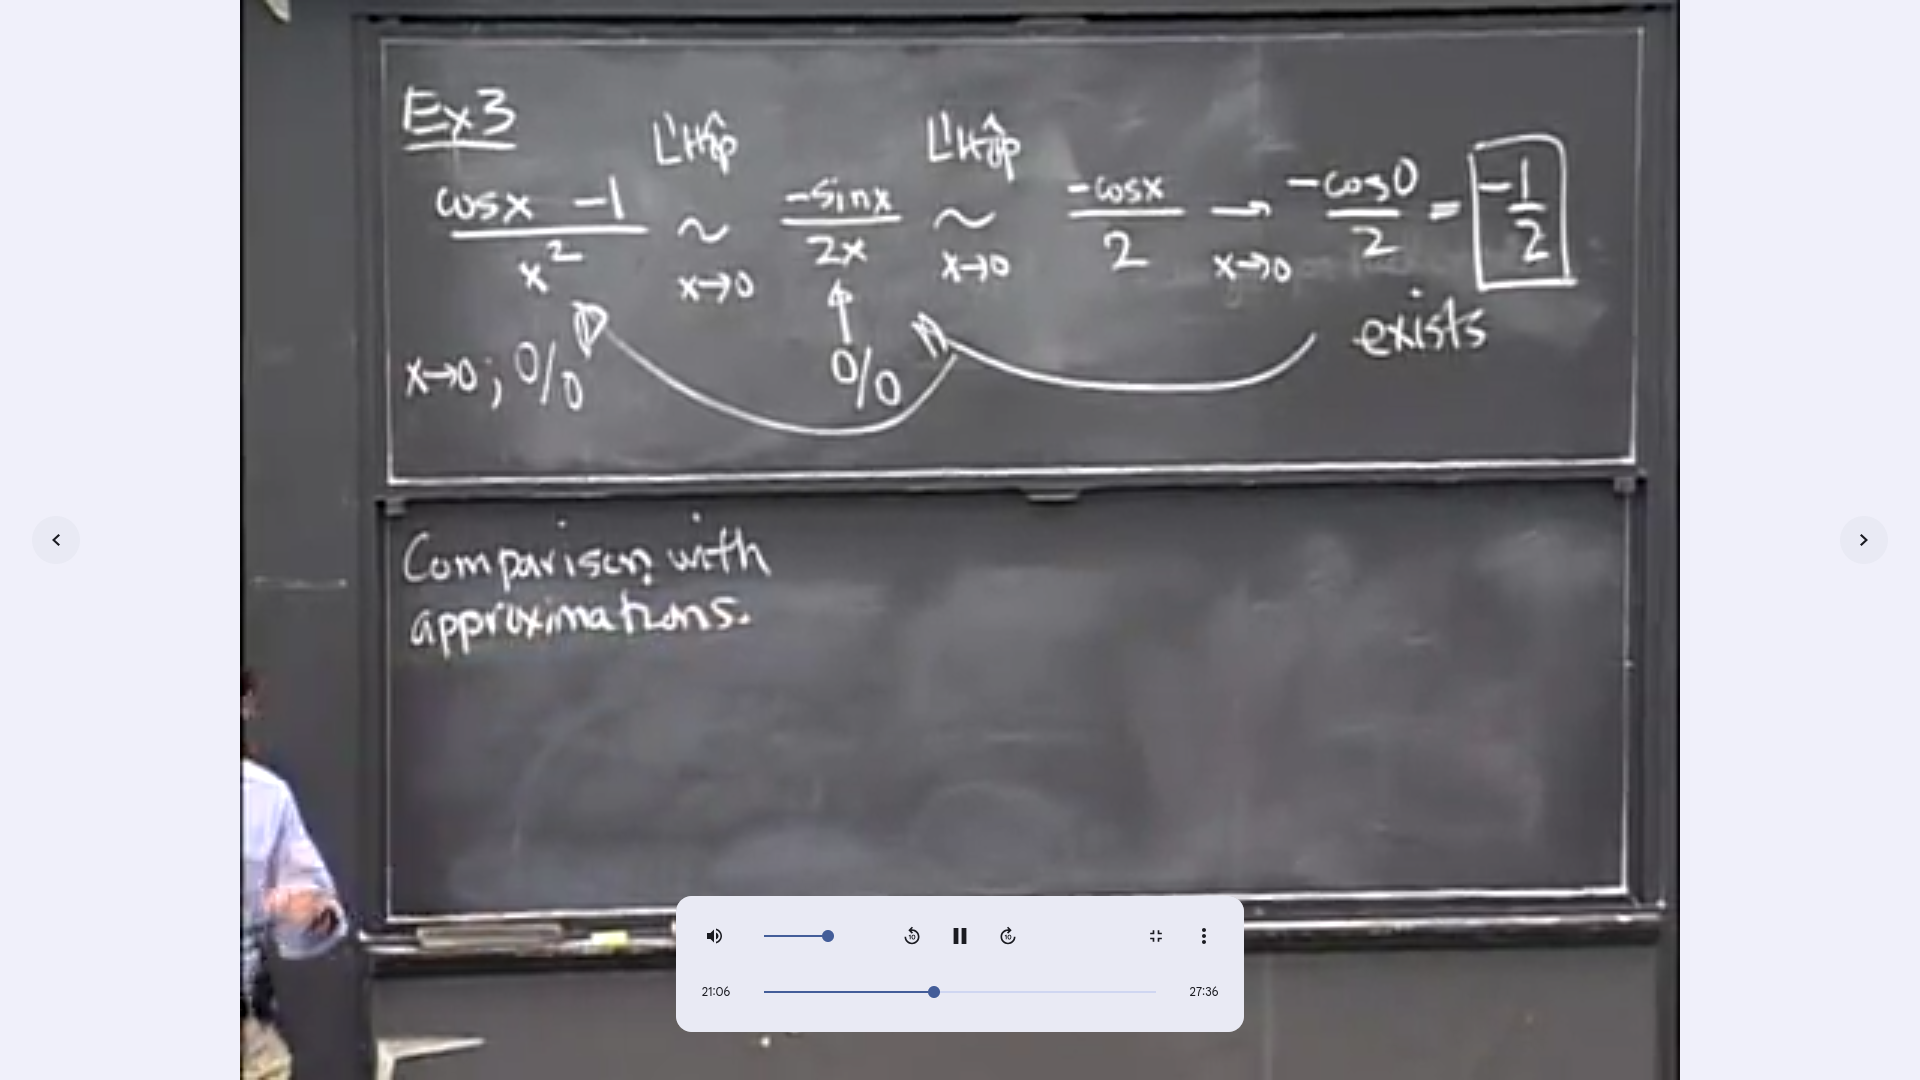 Ex 3
L'Hôp L'Hôp
cosx - 1 / x² ~ x→0 -sinx / 2x ~ x→0 -cosx / 2 → x→0 -cos0 / 2 = -1/2
exists
x→0; 0/0 0/0
Comparison with
approximations.
10 10
21:06 27:36